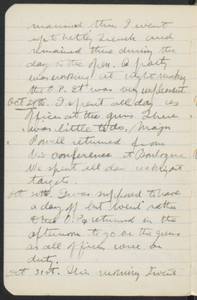 manned then I went
up to Hetty Trench and
remained there during the
day to the open. A party
was working at night making
the O.P. It was very unpleasant
Oct 28th. I spent all day as
officer at the guns. There
was little to do. Major
Powell returned from
his conference at Boulogne
We spent all day
targets.
Oct 29th. I was supposed to have
a day off but went
O.P. returned in the
afternoon to go on the guns
as all officers were on
duty.
Oct 30th. This morning I went